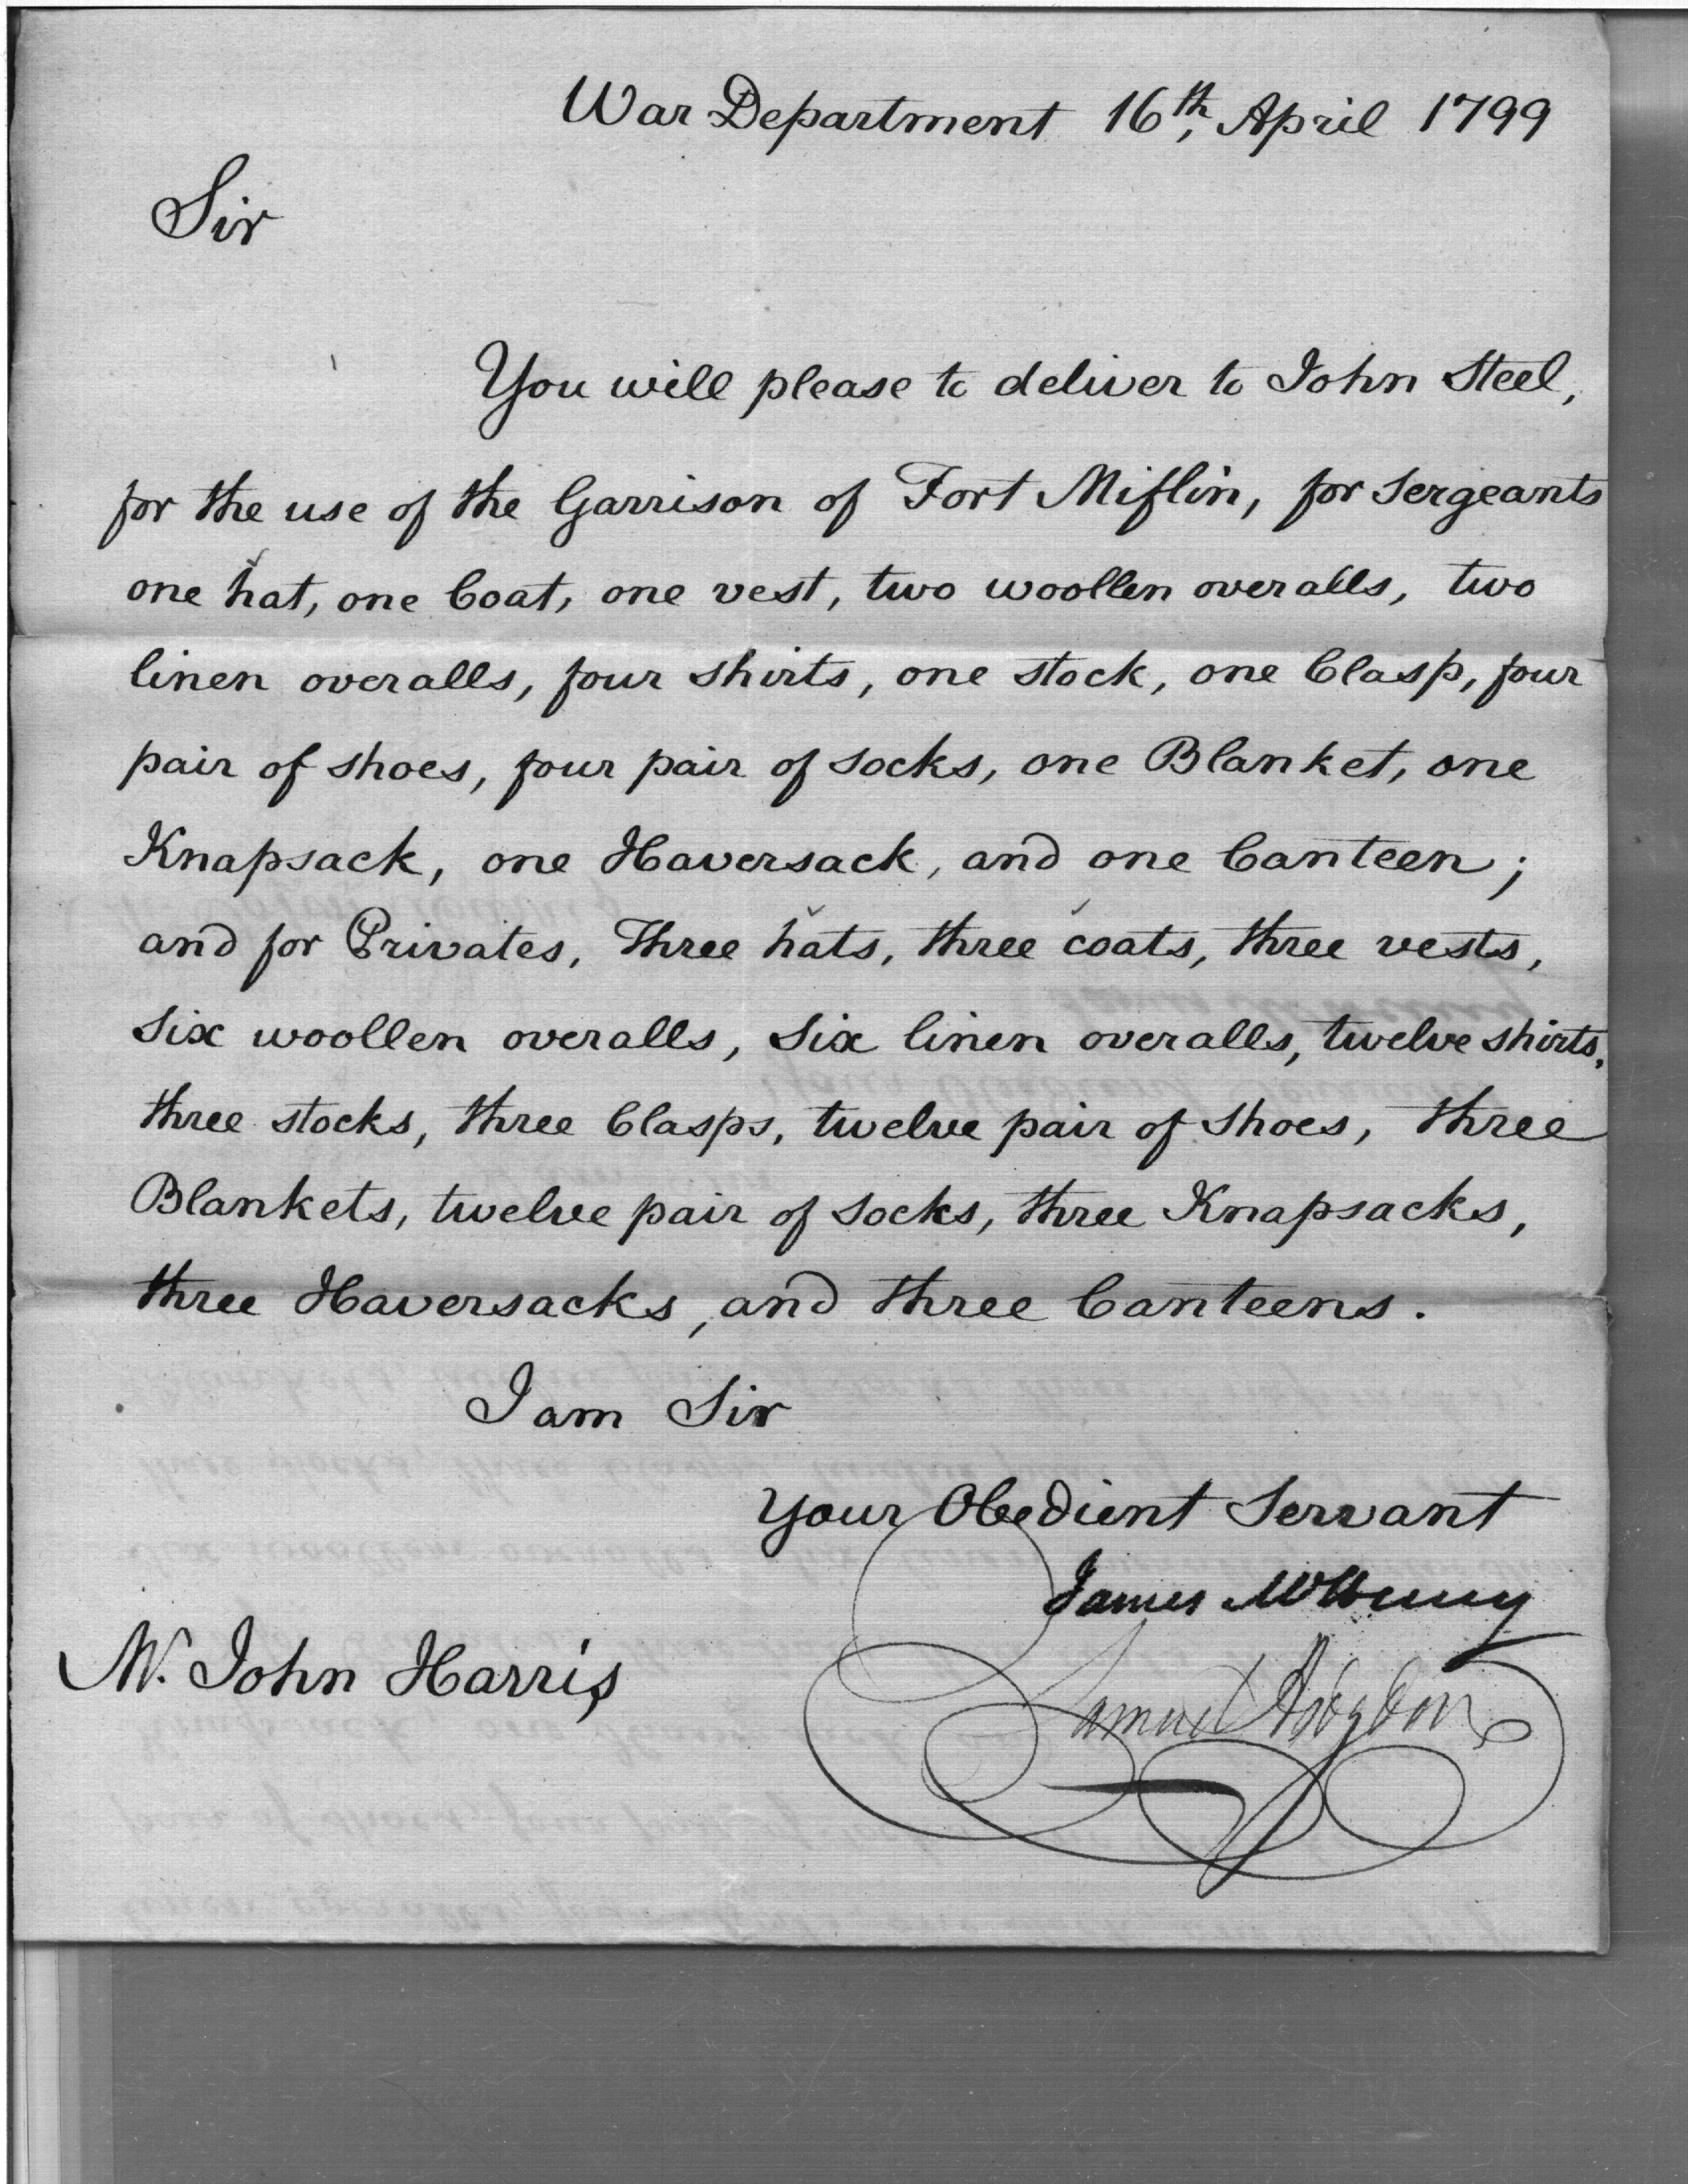 War Department 16th, April 1799
Sir
You will please to deliver to John Steel,
for the use of the Garrison of Fort Miflin, for Sergeants
one hat, one Coat, one vest, two woollen overalls, two
linen overalls, four shirts, one stock, one Clasp, four
pair of shoes, four pair of socks, one Blanket, one
Knapsack, one Haversack, and one Canteen;
and for Privates, Three hats, three coats, three vests,
Six woollen overalls, Six linen overalls, twelve shirts,
three stocks, three Clasps, twelve pair of shoes, three
Blankets, twelve pair of socks, three Knapsacks,
three Haversacks, and three Canteens.
I am Sir
Your Obedient Servant
James McHenry
M. John Harris
Samuel Hodgdon